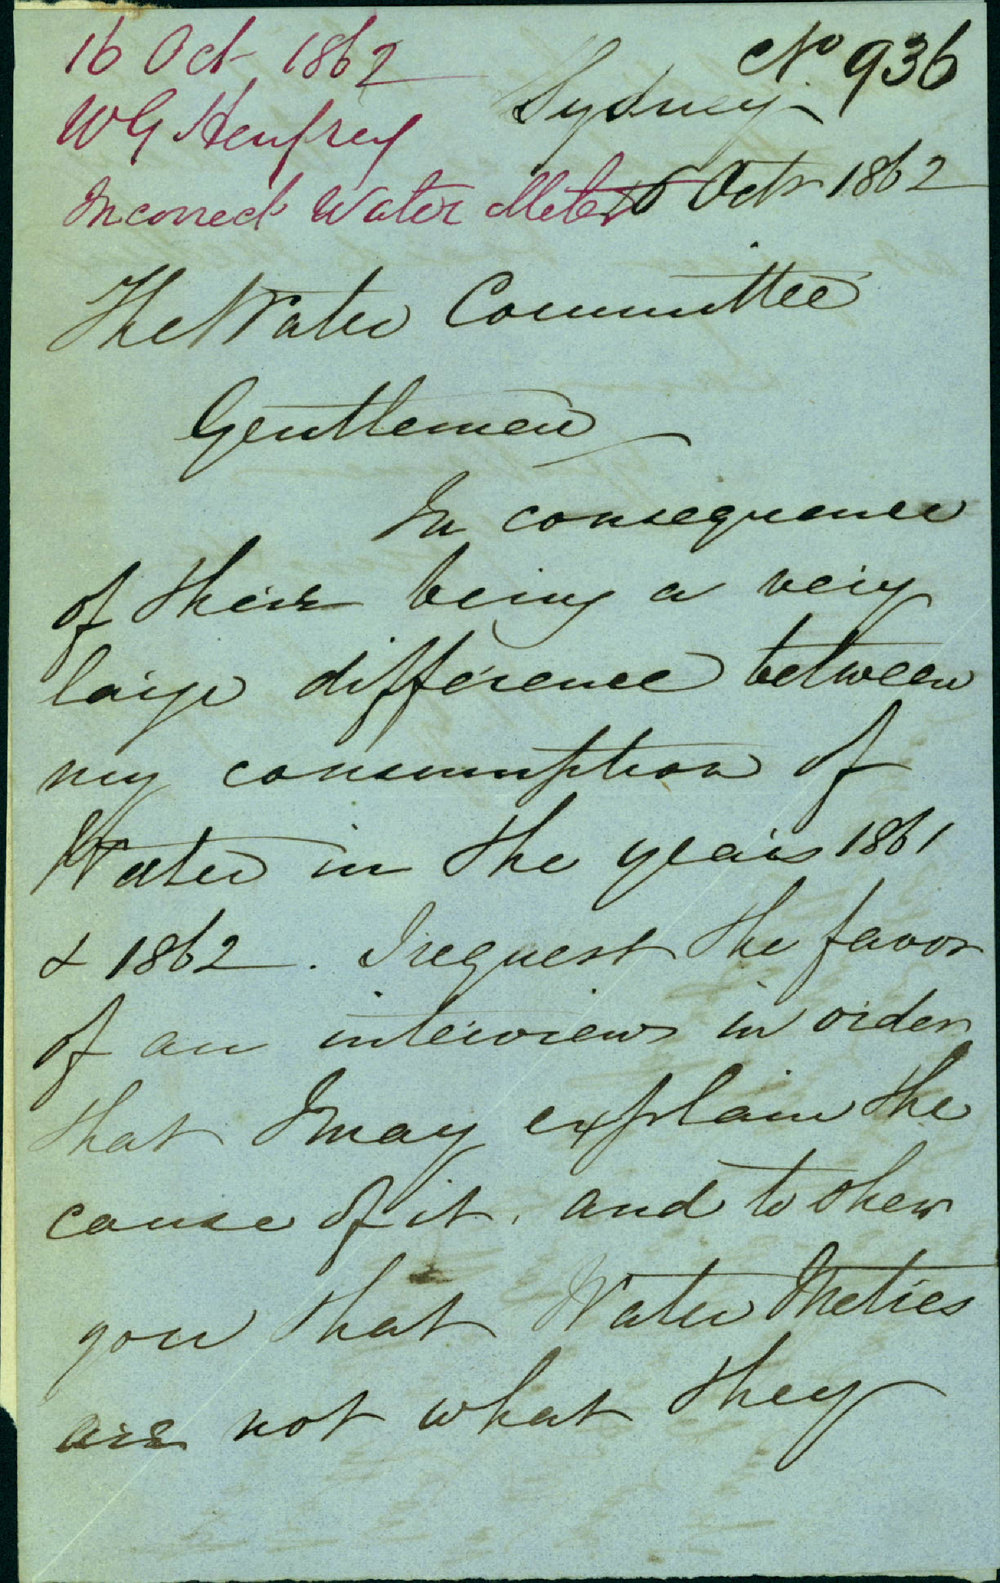 16 Oct 1862
No 936
W G Henfrey
Sydney
Incorrect Water Meter
16 Octr 1862
The Water Committee
Gentlemen
In consequence
of their being a very
large difference between
my consumption of
Water in the years 1861
& 1862. I request the favor
of an interview in order
that I may explain the
cause of it, and to shew
you that Water Metres
are not what they